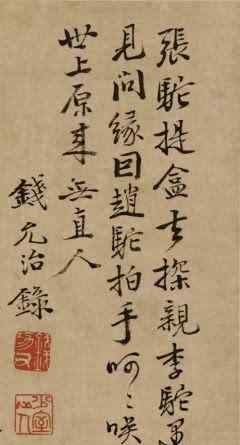 張駝提盒去探親李駝遇
見問緣囙趙駝拍手呵〻咲
世上原來無直人
錢允治錄